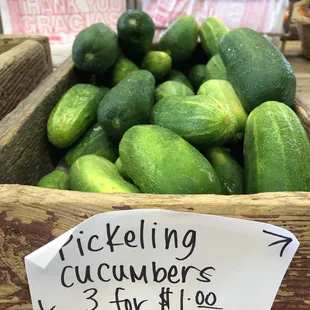 THANK YOU
GRACIAS
Pickeling
cucumbers
3 for $1.00